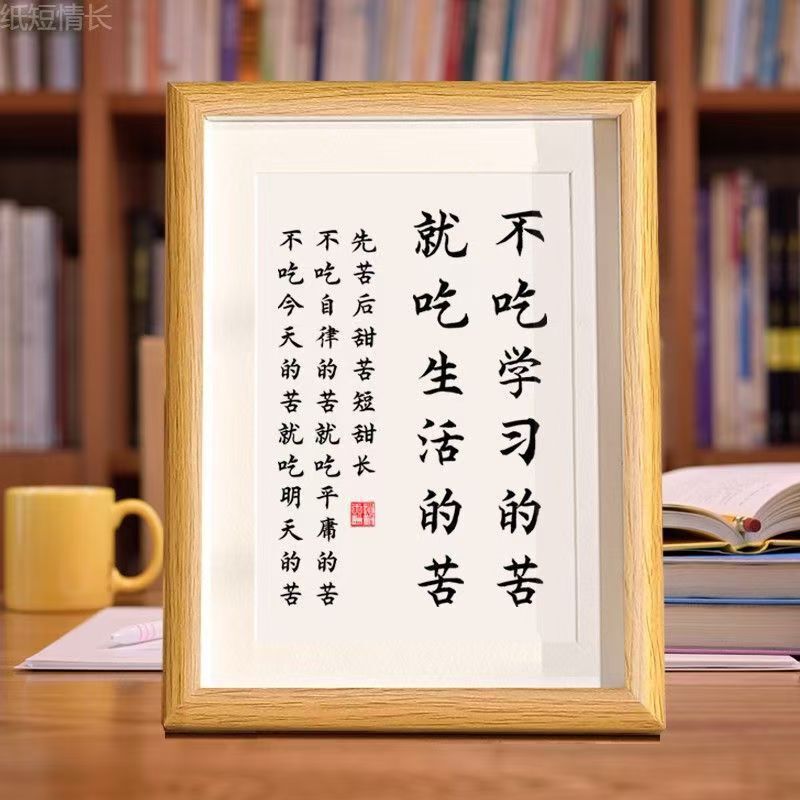 纸短情长
不吃学习的苦
就吃生活的苦
先苦后甜苦短甜长
不吃自律的苦就吃平庸的苦
不吃今天的苦就吃明天的苦